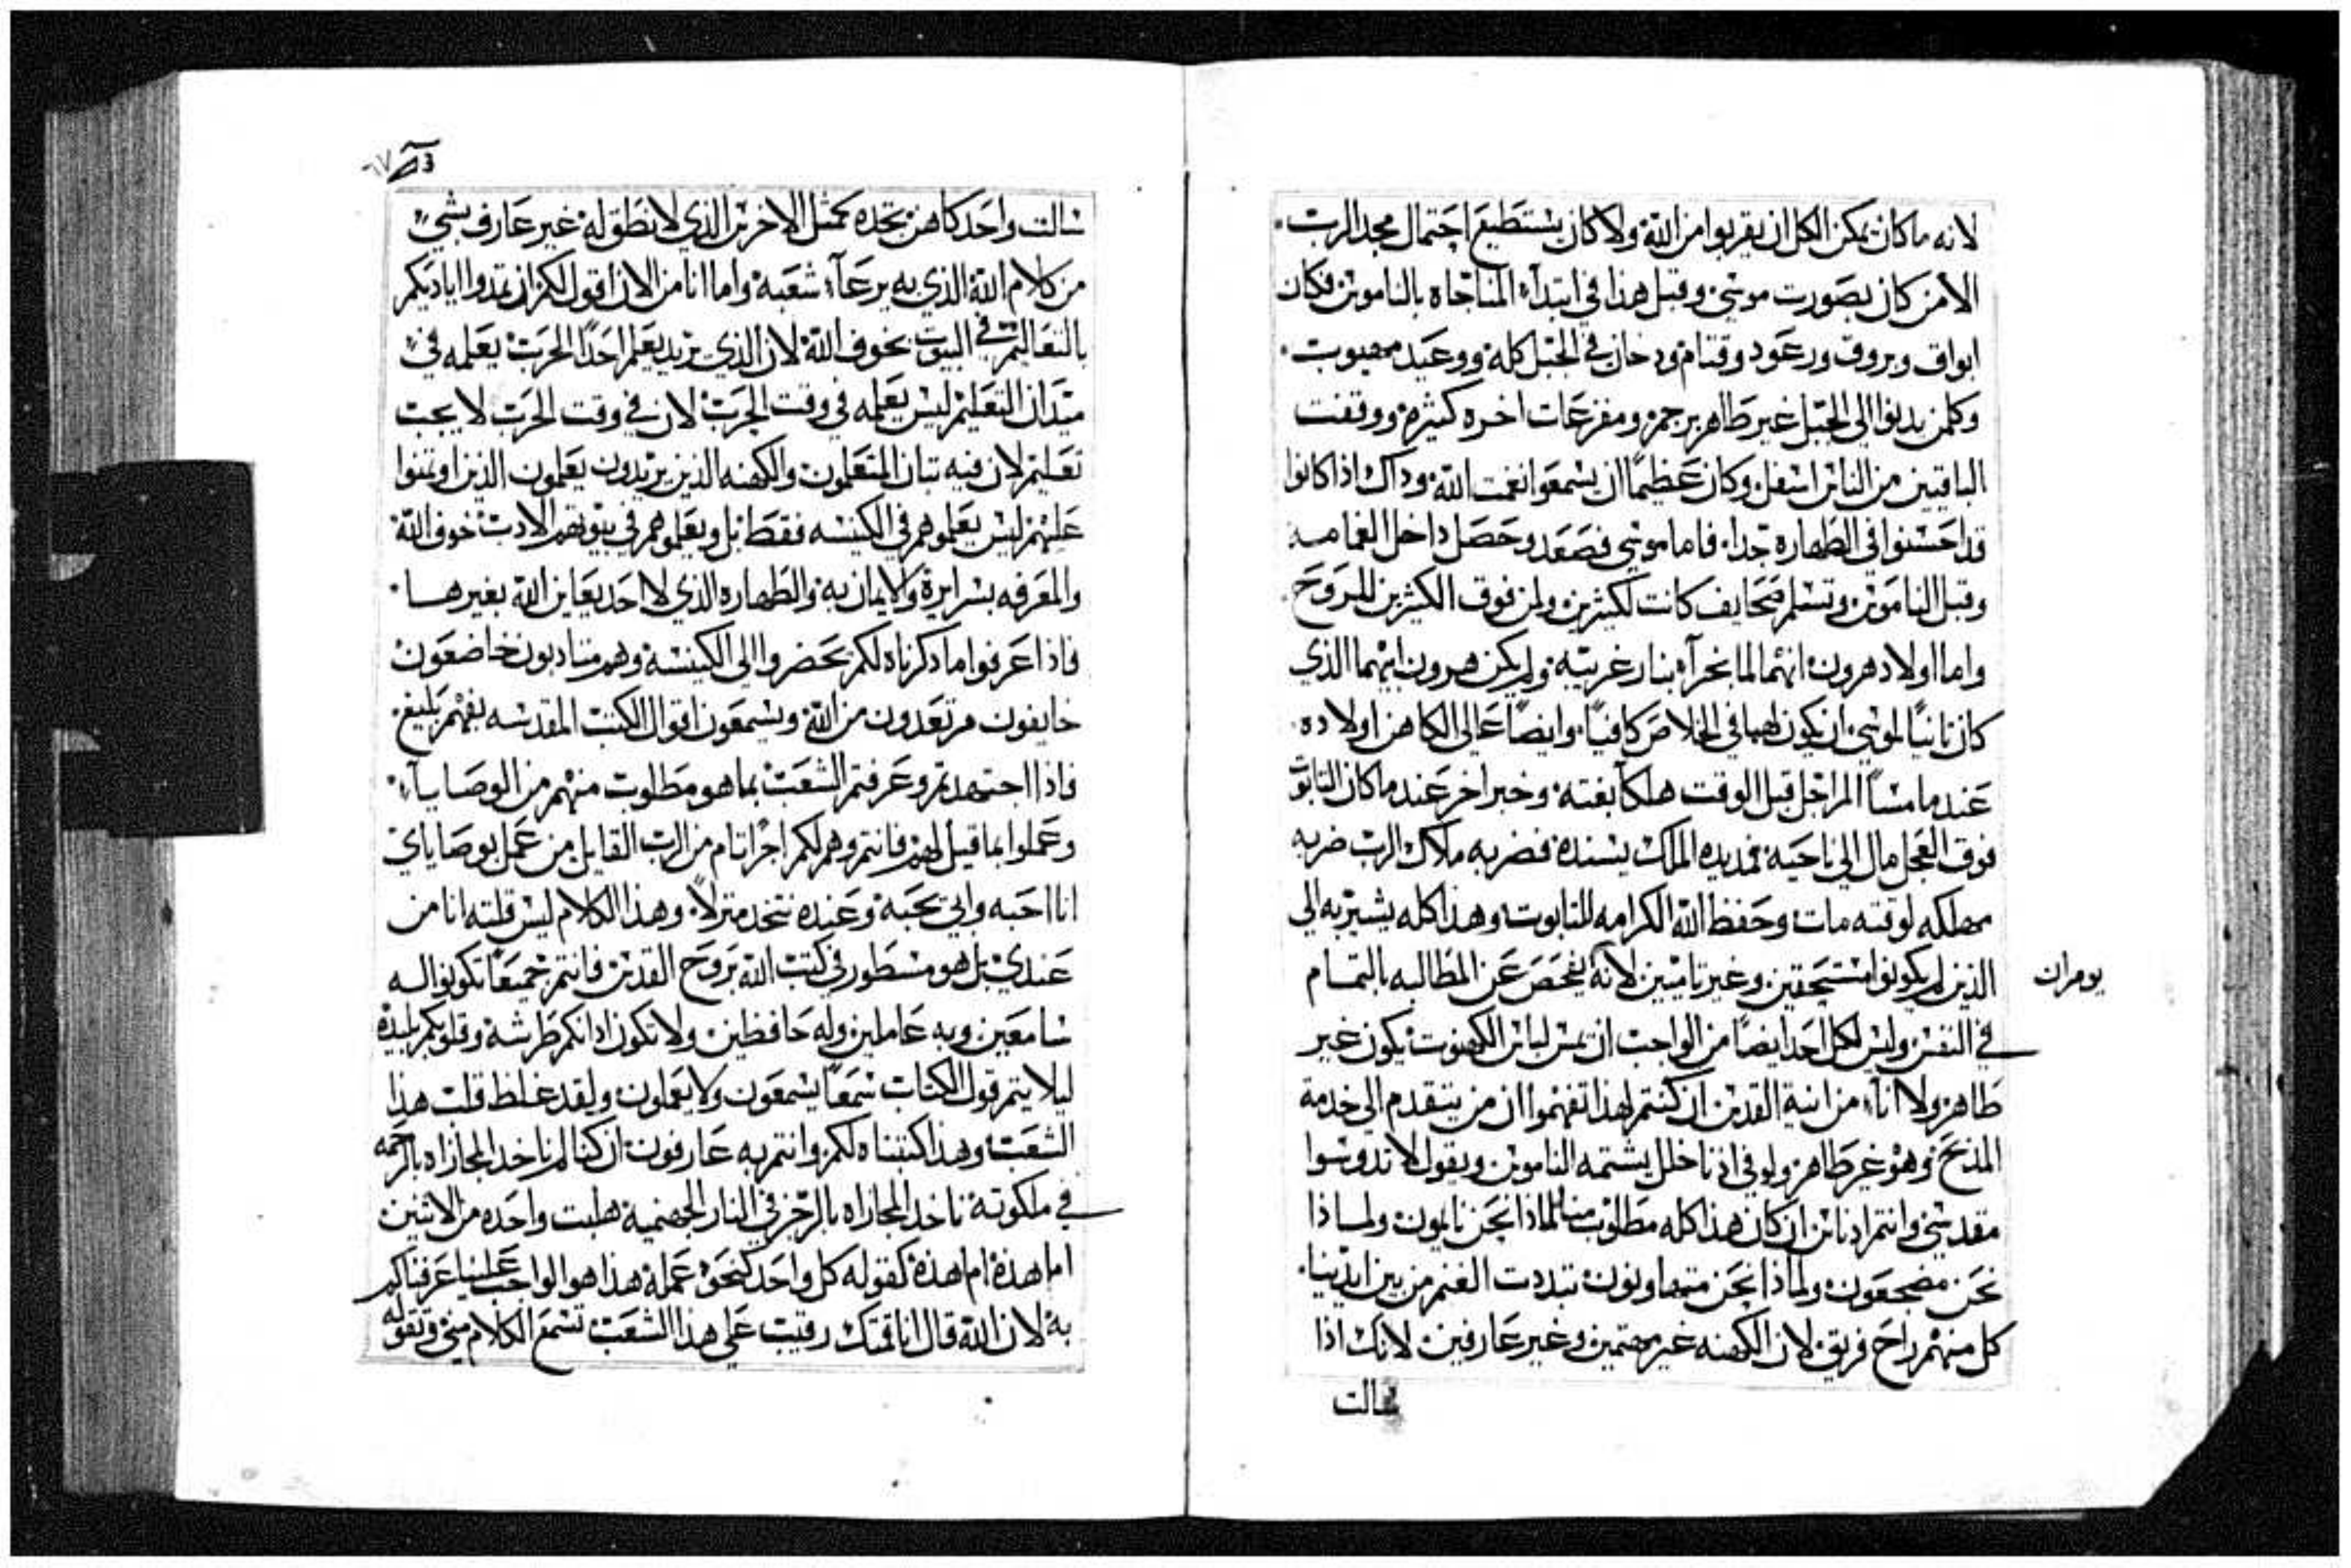 لانه ماكان يمكن الكل ان يقربوا من الله ولا كان يستطيع احتمال مجد الرب.
الا من كان بصورت موسي وقبل هذا في ابتدآء المناجاه بالناموس فكان
ابواق وبروق ورعود وقتام ودخان في الجبل كله ووعيد مصبوب.
وكلمن يدنوا الي الجبل غير طاهر يرجم ومفزعات اخره كثيره ووقفت
الباقيين من الناس اسفل وكان عظيمًا ان يسمعوا نغمت الله وداك اذا كانوا
قد احسنوا في الطهاره جدا. فاما موسي فصعد وحصل داخل الغمامه
وقبل الناموس وتسلم صحايف كانت لكثيرين ولمن فوق الكثيرين للروح.
واما اولاد هرون انهما لما بخرآ بنار غريبه ولم يكن هرون ابيهما الذي
كان ثانيًا لموسي ان يكون لهما في الخلاص كافيًا. وايضًا عالي الكاهن اولاده
عند ما مسآ المراجل قبل الوقت هلكا بغته وخبر اخر عند ما كان التابوت
فوق العجل مال الي ناحيه فمد يده الملك يسنده فضربه ملاك الرب ضربه
مهلكه لوقته مات وحفظ الله الكرامه للتابوت وهذا كله يشير به الي
الذين لم يكونوا مستحقين وغير تايبين لانه يفحص عن المطالبه بالتمام
يومرات
في النفس وليس لكل احد ايضًا من الواجب ان يمس لباس الكهنوت يكون غير
طاهر ولا انآء من انية القدس ان كنتم لهذا تفهموا ان من يتقدم الي خدمة
المذبح وهو غير طاهر ولو في اذنا خلل يشتمه الناموس ويقول لا تدوسوا
مقدسي وانتم ادناس ان كان هذا كله مطلوب منا لماذا نحن نايمون ولماذا
نحن مضجعون ولماذا نحن متهاونون تبددت الغنم من بين ايدينا.
كل منهم راح فريق لان الكهنه غير مهتمين وغير عارفين لانك اذا
سالت
سالت واحد كاهن تجده كمثل الاخرس الذي لا نطق له غير عارف بشي
من كلام الله الذي به يرعآ شعبه واما انا من الان اقول لكم ان تمدوا اياديكم
بالتعاليم في البيوت بخوف الله لان الذي يريد يعلم احدًا الحرب يعلمه في
ميدان التعليم ليس يعلمه في وقت الحرب لان في وقت الحرب لا يجب
تعليم لان فيه تبان المتعلمون والكهنه الذين يريدون يعلمون الذين اوتمنوا
عليهم ليس يعلموهم في الكنيسه فقط بل ويعلموهم في بيوتهم الادب خوف الله
والمعرفه بسرايره والايمان به والطهاره الذي لا احد يعاين الله بغيرها.
فاذا عرفوا ما دكرناه لكم يحضروا الي الكنيسه وهم متادبون خاضعون
خايفون مرتعدون من الله ويسمعون اقوال الكتب المقدسه بفهم بليغ.
فاذا اجتهدتم وعرفتم الشعب بما هو مطلوب منهم من الوصايآ.
وعملوا بما قيل لهم فانتم وهم لكم اجرًا تام من الرب القايل من عمل بوصاياي
انا احبه وابي يحبه وعنده نتخد منزلاً. وهذا الكلام ليس قلته انا من
عندي بل هو مسطور في كتب الله بروح القدس فانتم جميعًا تكونوا له
سامعين وبه عاملين وله حافظين ولا تكون ادانكم طرشه وقلوبكم بليده
ليلا يتم قول الكتاب سمعًا يسمعون ولا يعملون ولقد غلظ قلب هذا
الشعب وهذا كتبناه لكم وانتم به عارفون ان كنا لم ناخد المجازاه بالرحمه
في ملكوته ناخد المجازاه بالزجر في النار الجهنمية طلبت واحده من الاثنين
اما هذه ام هذه كقوله كل واحد كنحو عمله هذا هو الواجب علينا عرفناكم
به لان الله قال انا قمتك رقيب علي هذا الشعب تسمع الكلام مني وتقوله